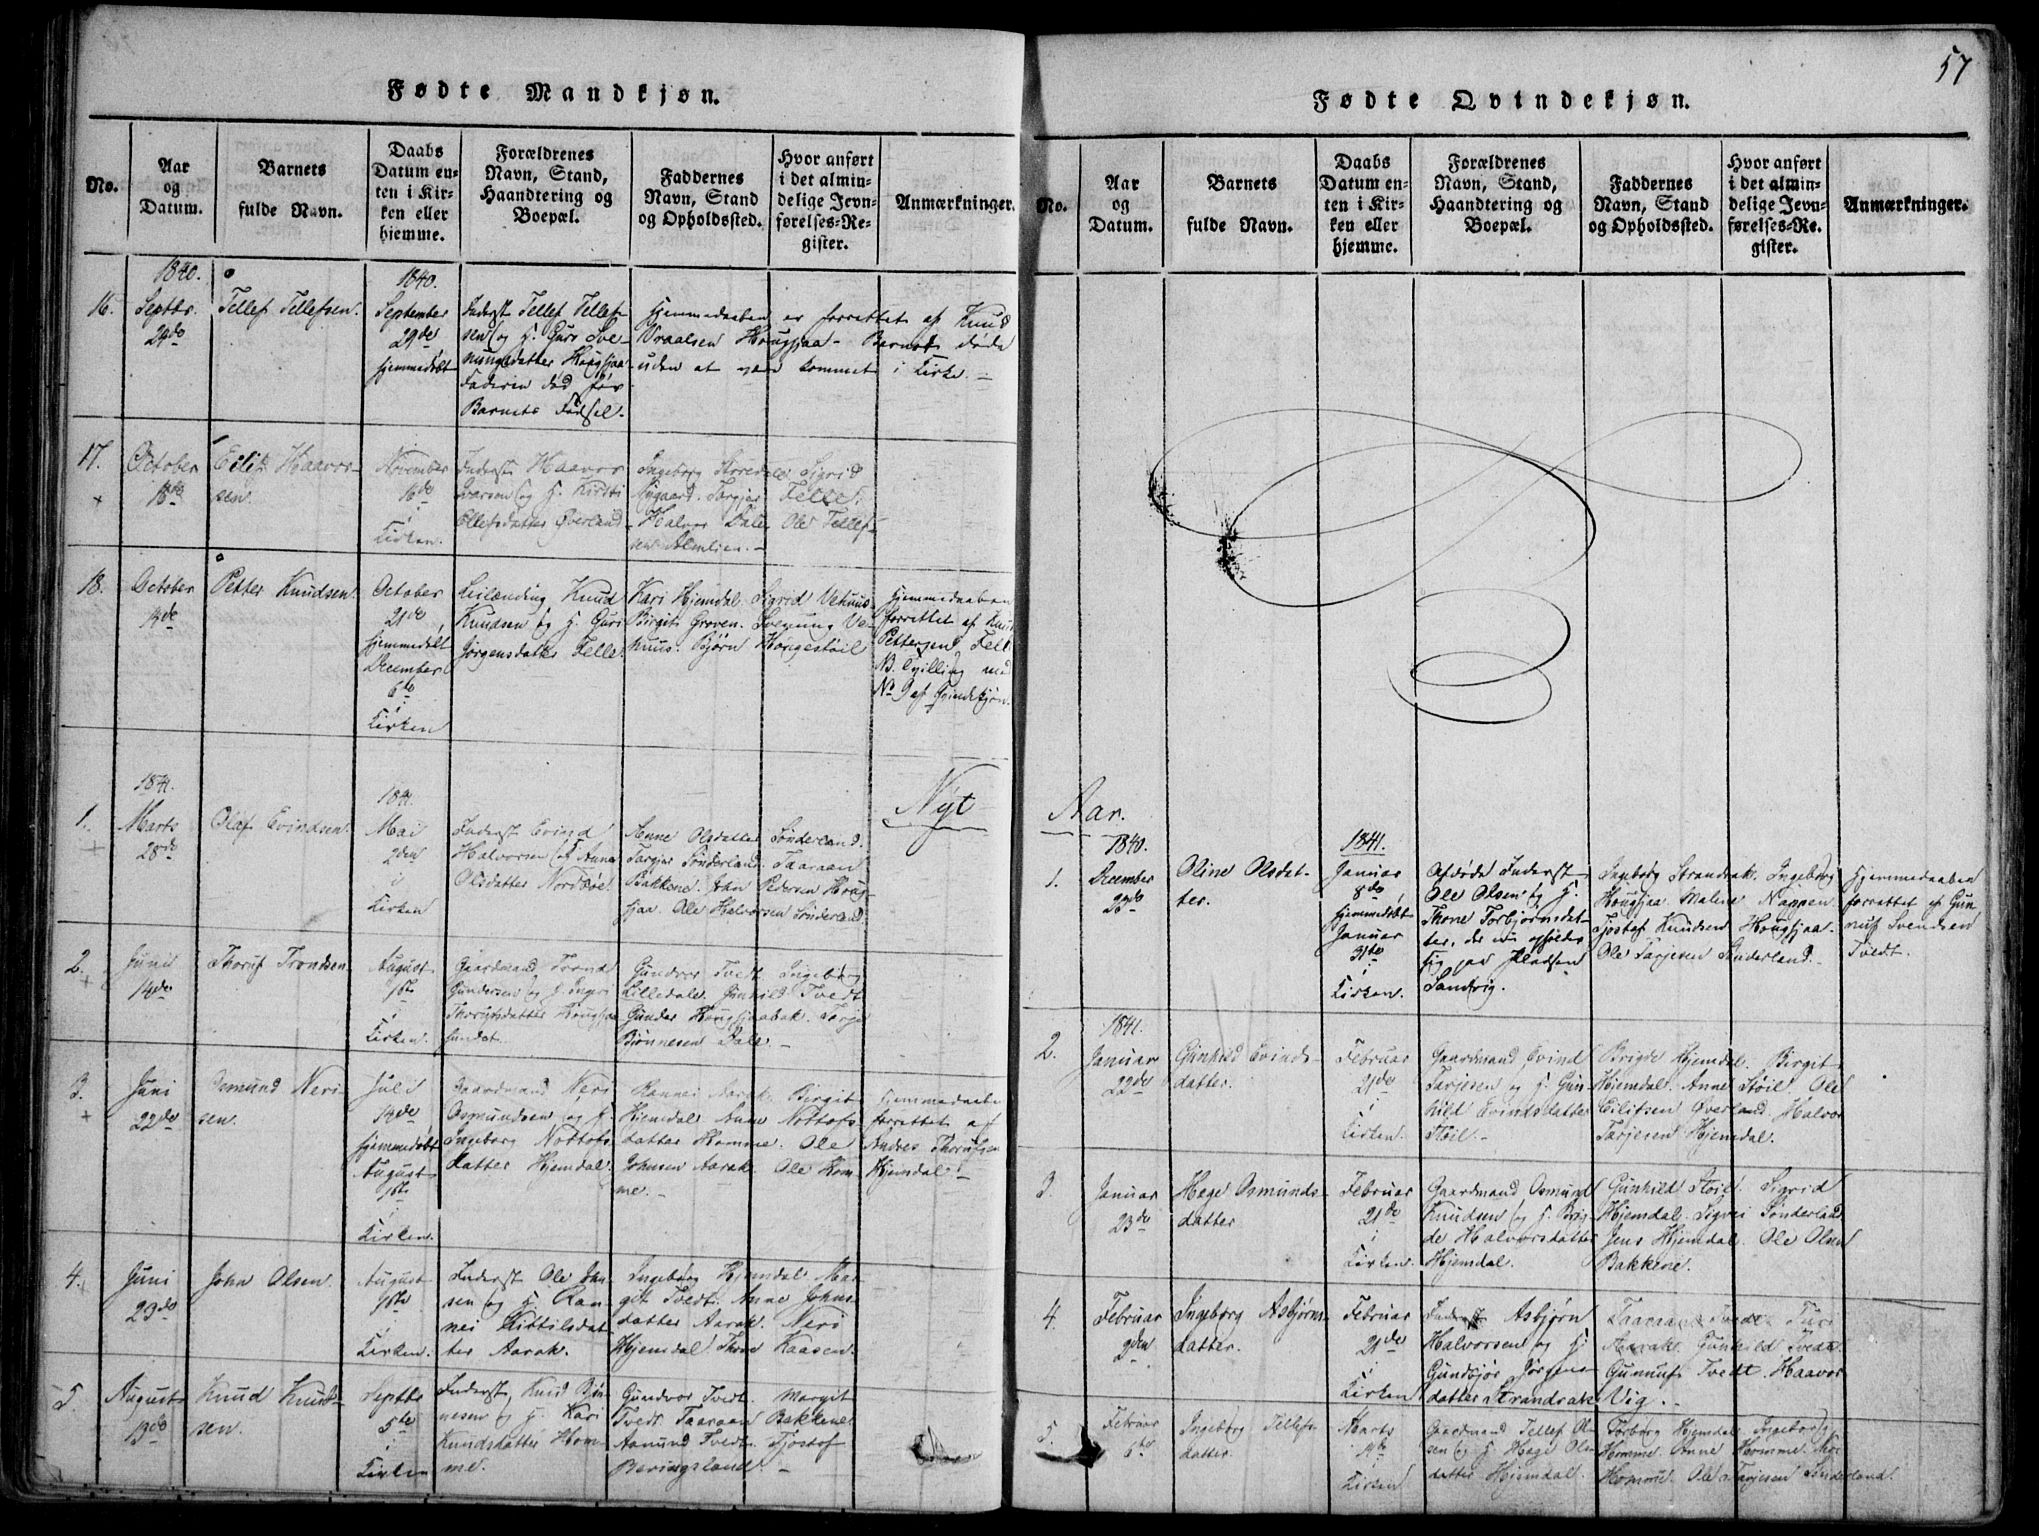 Fødte Mandkjøn.
No.
Aar
og
Datum.
Barnets
fulde Navn.
Daabs
Datum en-
ten i Kir-
ken eller
hjemme.
Forældrenes
Navn, Stand,
Haandtering og
Boepæl.
Faddernes
Navn, Stand
og Opholdssted.
Hvor anført
i det almin-
delige Jevn-
førelses-Re-
gister.
Anmærkninger.
16.
1840.
Septbr.
24de
Tellef Tellefsen.
1840.
September
29de
hjemmedøbt
Inderst Tellef Tellef-
sen og H. Guro Sve-
nungsdatter Hougsjaa
Faderen død før
Barnets Fødsel.
Hjemmedaaben er forrettet af Knud
Vraalsen Hougsjaa - Barnet døde
uden at være kommet i Kirke. -
17.
October
18de
Eilif Haavor-
sen.
November
16de
i
Kirken.
Inderst Haavor
Ivarsen og H. Kirsti
Ellefsdatter Øverland
Ingeborg Storedale Sigrid
Nygaard. Torgjer Felle.
Halvor Dale Ole Tellef-
sen Almlien. -
18.
October
19de
Petter Knudsen.
October
21de
hjemmedøbt
December
6te
i
Kirken
Leilænding Knud
Knudsen og H. Guri
Jørgensdatter Felle.
Kari Hjemdal Sigrid Vehuus-
Birgit Groven. Svenung Ve-
huus. Bjørn Hougestøil
Hjemmedaaben
forrettet af Knud
Pettersen Felle
NB. Tvilling med
No 9 af Qvindekjøn.
Nyt
1.
1841.
Marts
28de
Olaf Evindsen.
1841.
Mai
2den
i
Kirken
Inderst Evind
Halvorsen og H. Anne
Olsdatter Nordbøe.
Anne Olsdatter Sønderland.
Targier Sønderland. Taaraan
Bakkene. John Pedersen Houg-
sjaa. Ole Halvorsen Sønderland.
2.
Junii
14de
Thoruf Trondsen
August
1ste
i
Kirken.
Gaardmand Trond
Gundersen og H. Ingri
Thorufsdatter Hougsjaa-
sundet.
Gundvor Tvedt. Ingeborg
Lilledale. Gunhild Tvedt
Gunder Hougsjaabak. Tarje
Bjønnesen Dale. -
3.
Juni
22de
Osmund Neri-
sen.
Juli
14de
hjemmedøbt
August
1ste
i
Kirken.
Gaardmand Neri
Osmundsen og H.
Ingeborg Nottofs-
datter Hjemdal.
Rannei Aarak. Birgit
Hjemdal Anne Nottofs-
datter Homme. Ole
Johnsen Aarak. Ole Hom-
me. -
Hjemmedaaben
forrettet af
Anders Thorufsen
Hjemdal. -
4.
Juni
23de
John Olsen.
August
1ste
i
Kirken.
Inderst Ole Jon-
sen og H. Ran-
nei Kittilsdat-
ter Aarak.
Ingeborg Hjemdal Mar-
git Tvedt. Anne Johns-
datter Aarak. Neri
Hjemdal Thore Kaasen.
5.
August
13de
Knud Knud-
sen.
Septbr
5te
i
Kirken
Inderst Knud Bjø-
nesen og H. Kari
Knudsdatter Hom-
me.
Gundvor Tvedt. Margit
Tvedt. Taaraan Bakkene.
Aanund Tvedt. Tjostof
Beringsland. -
57
Fødte Qvindekjøn.
No.
Aar
og
Datum.
Barnets
fulde Navn.
Daabs
Datum en-
ten i Kir-
ken eller
hjemme.
Forældrenes
Navn, Stand,
Haandtering og
Boepæl.
Faddernes
Navn, Stand
og Opholdssted.
Hvor anført
i det almin-
delige Jevn-
førelses-Re-
gister.
Anmærkninger.
Aar.
1.
1840.
December
23de
Oline Olsdat-
ter.
1841.
Januar
8de
hjemmedøbt
Januar
31te
i
Kirken.
Afdøde Inderst
Ole Olsen og H.
Thone Torbjørnsdat-
ter, der nu opholder
sig paa Pladsen
Sandvig.
Ingeborg Strandrak. Ingeborg
Hougsjaa. Malene Nappen
Tjostef Knudsen Hougsjaa-
Ole Tarjesen Sønderland. -
Hjemmedaaben
forrettet af Gun-
nuf Svendsen
Tvedt.
2.
1841.
Januar
22de
Gunhild Evinds-
datter.
Februar
21de
i
Kirken.
Gaardmand Evind
Tarjesen og H. Gun-
hild Evindsdatter
Støil. -
Brigde Hjemdal. Birgit
Hjemdal. Anne Støil. Ole
Eilifsen Øverland. Halvor
Tarjesen Hjemdal.
3.
Januar
23de
Hæge Osmunds-
datter
Februar
21de
i
Kirken.
Gaardmand Osmund
Knudsen og H. Brig-
de Halvorsdatter
Hjemdal.
Gunhild Støil. Sigrid
Hjemdal. Signei Sønderland
Jens Hjemdal. Ole Olsen
Bakkene.
4.
Februar
2den
Ingeborg Asbjørns-
datter.
Februar
21de
i
Kirken
Inderst Asbjørn
Halvorsen og H.
Gundbjør Jørgens-
datter Strandrak
Taaraan Tvedt. Turi
Aarak. Gunhild Tvedt.
Gunnuf Tvedt. Haavor
Vig. -
5.
Februar
6te
Ingeborg Tellefs-
datter.
Marts
14de
i
Kirken
Gaardmand Tellef Ol-
sen og H. Hæge Ols-
datter Hjemdal.
Torborg Hjemdal. Ingeborg
Homme. Anne Homme.
Homme. Ole Tarjesen Sønderland.